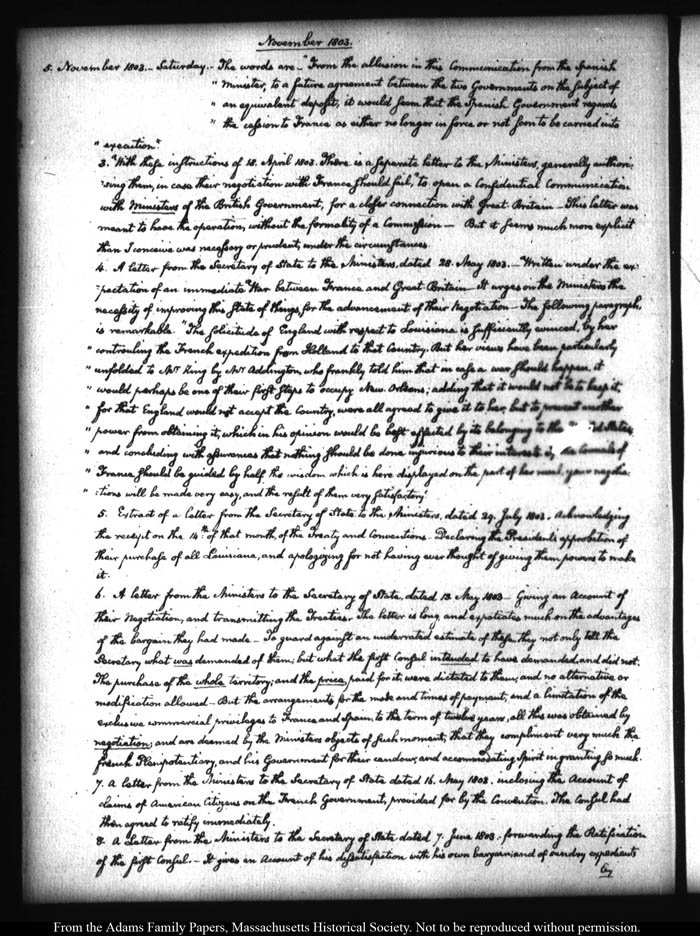 November 1803.
5. November 1803. - Saturday. - The words are - "From the allusion in this Communication from the Spanish
" Minister, to a future agreement between the two Governments on the subject of
" an equivalent deposit, it would seem that the Spanish Government regards
" the cession to France as either no longer in force or not soon to be carried into
" execution."
3. With these instructions of 18. April 1803. There is a separate letter to the Ministers, generally authori:
:sing them, in case their negotiation with France should fail, "to open a Confidential Communication
with Ministers of the British Government, for a closer connection with Great-Britain - This letter was
meant to have the operation, without the formality of a Commission - But it seems much more explicit
than I conceive was necessary or prudent, under the circumstances.
4. A letter from the Secretary of State to the Ministers, dated 28. May 1803. - Written under the ex:
:pectation of an immediate War between France and Great Britain - It urges on the Ministers the
necessity of improving this State of things, for the advancement of their Negotiation - The following paragraph,
is remarkable. "The solicitude of England with respect to Louisiana is sufficiently evinced, by her
" controuling the French expedition from Holland to that Country. But her views have been particularly
" unfolded to Mr King by Mr Addington, who frankly told him that in case a war should happen, it
" would perhaps be one of their first steps to occupy New-Orleans; adding that it would not be to keep it,
" for that England would not accept the Country, were all agreed to give it to her, but to prevent another
" power from obtaining it, which in his opinion would be best effected by its belonging to the d States;
" and concluding with assurances that nothing should be done injurious to their interests. If, the Councils of
" France should be guided by half the wisdom which is here displayed on the part of her rival, your negotia:
" :tions will be made very easy, and the result of them very satisfactory."
5. Extract of a letter from the Secretary of State to the Ministers, dated 29. July 1803. Acknowledging
the receipt on the 14th: of that month, of the Treaty and Conventions. Declaring the President's approbation of
their purchase of all Louisiana, and apologizing for not having ever thought of giving them powers to make
it.
6. A letter from the Ministers to the Secretary of State, dated 13. May 1803 - Giving an Account of
their Negotiation, and transmitting the Treaties. The letter is long, and expatiates much on the advantages
of the bargain they had made - To guard against an underrated estimate of these, they not only tell the
Secretary what was demanded of them; but what the first Consul intended to have demanded, and did not.
The purchase of the whole territory; and the price, paid for it, were dictated to them; and no alternative or
modification allowed - But the arrangements for the mode and times of payment, and a limitation of the
exclusive commercial privileges to France and Spain, to the term of twelve years, all this was obtained by
negotiation; and are deemed by the Ministers objects of such moment, that they compliment very much the
french Plenipotentiary, and his Government for their candour, and accommodating Spirit in granting so much.
7. A letter from the Ministers to the Secretary of State dated 16. May 1803. inclosing the Account of
claims of American Citizens on the French Government, provided for by the Convention. The Consul had
then agreed to ratify immediately.
8. A Letter from the Ministers to the Secretary of State dated 7. June 1803. forwarding the Ratification
of the first Consul. - It gives an Account of his dissatisfaction with his own bargain; and of sundry expedients
by
From the Adams Family Papers, Massachusetts Historical Society. Not to be reproduced without permission.